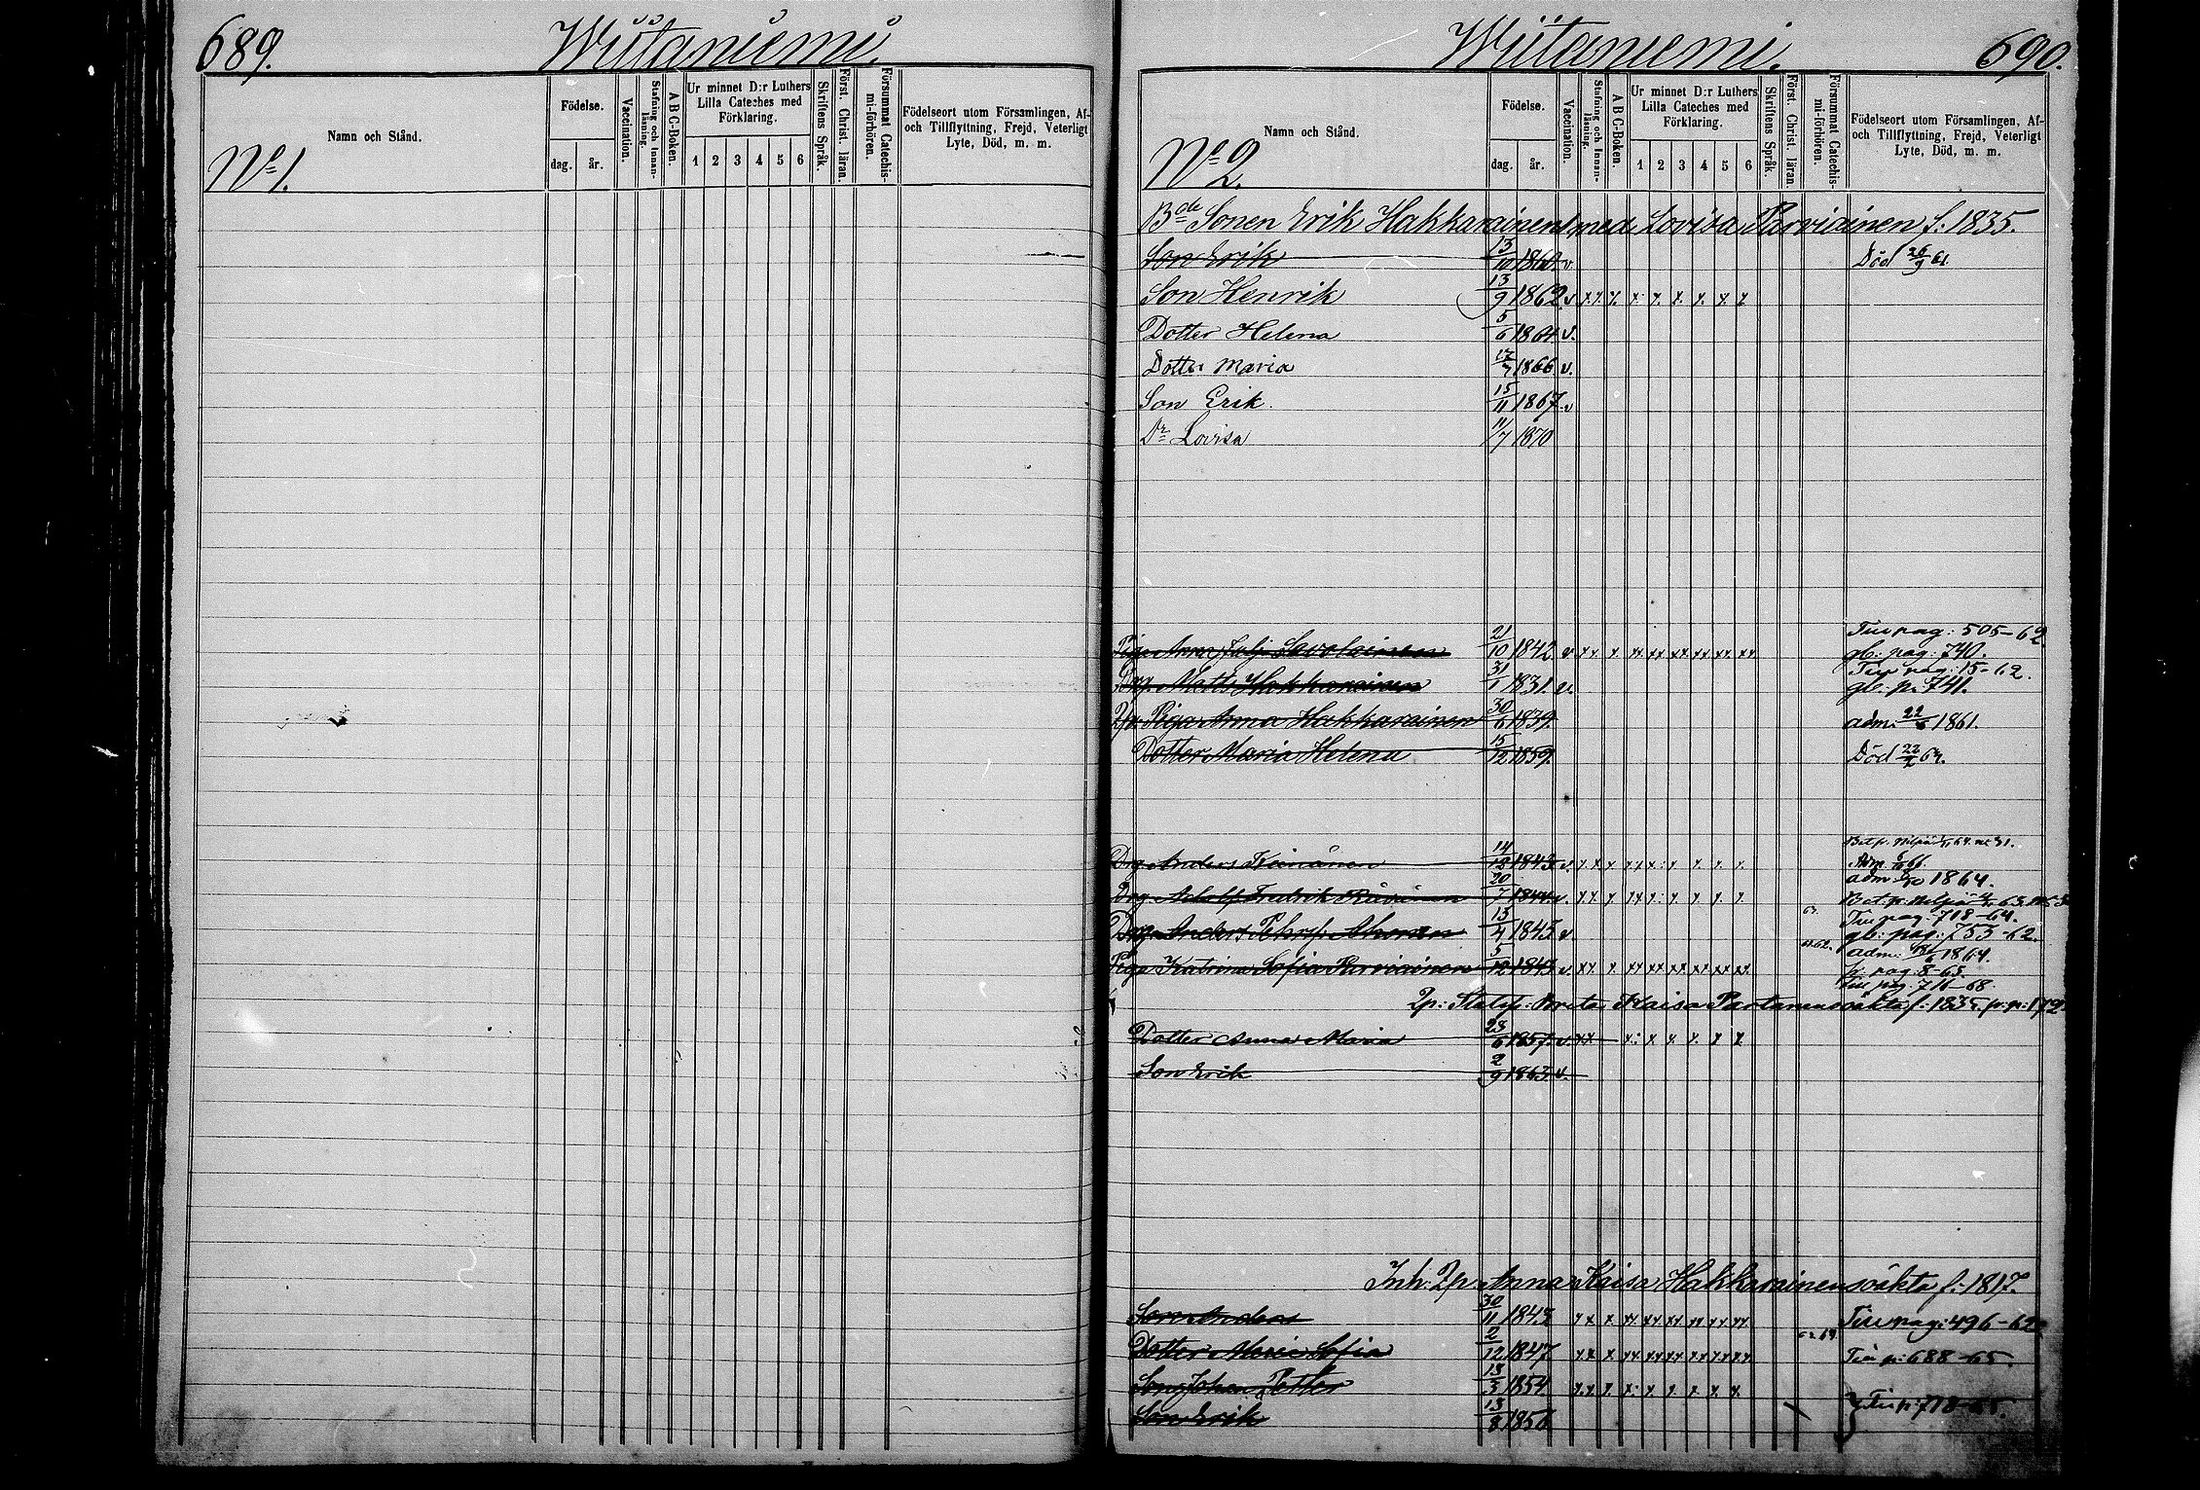 689. Wiitaniemi.
Namn och Stånd.
Födelse.
dag. år.
Vaccination.
Stafning och Innanläsning.
A B C-Boken.
Ur minnet D:r Luthers Lilla Cateches med Förklaring.
1 2 3 4 5 6
Skriftens Språk.
Först. Christ. läran.
Försummat Catechismi-förhören.
Födelseort utom Församlingen, Af-
och Tillflyttning, Frejd, Veterligt
Lyte, Död, m. m.
No 1.
Wiitaniemi. 690.
Namn och Stånd.
Födelse.
dag. år.
Vaccination.
Stafning och Innanläsning.
A B C-Boken.
Ur minnet D:r Luthers Lilla Cateches med Förklaring.
1 2 3 4 5 6
Skriftens Språk.
Först. Christ. läran.
Försummat Catechismi-förhören.
Födelseort utom Församlingen, Af-
och Tillflyttning, Frejd, Veterligt
Lyte, Död, m. m.
No 2.
Bde Sonen Erik Hakkarainen med Lovisa Parviainen f: 1835.
Son Erik 13/10 1860. v Död 26/9 61
Son Henrik 13/9 1862. v x x x x x x x x x
Dotter Helena 5/6 1864 v.
Dotter Maria 1866 v.
Son Erik. 15/11 1867. v
Dr Lovisa 11/7 1870
Piga Anna Savolainen 21/10 1842 v x x x xx xx xx xx xx xx pag: 505-62
gb: pag: 740.
Drg. Matts Hakkarainen 31/1 1831. v. pag: 15-62.
gb: p: 741.
Piga Anna Hakkarainen 30/6 1839. adm: 1861.
Dotter Maria Helena 15/12 1859. Död
Drg Anders 14/12 1843 v. x x x x x x x x x
Adm. 66.
Drg. Adolf Fredrik 20/7 1844 v. x x x x x x x x x adm 1864.
Drg. Anders Ahonen 13/4 1843 v pag: 718-64.
gb: pag: 753-62.
Piga Katrina Sofia Parviainen 5/12 1843 v x x x xx xx xx xx xx xx adm: 1864.
p: pag: 8-65.
pag: 716-68
Brita Kaisa Partanen f: 1835.
Dotter Anna Maria 23/6 1857. v. x x x x x x x x
Son Erik 2/9 1863 v.
Inh: Anna Kaisa Hakkarainen f: 1817.
Son Anders 30/11 1843 x x x xx xx xx xx xx xx pag: 496-62
Dotter Maria Sofia 2/12 1847 x x x xx xx xx xx xx xx p: 688-65.
Son Johan Petter 13/3 1854 x x x x x x x x x
Son Erik 13/8 1856 p: 718-65.